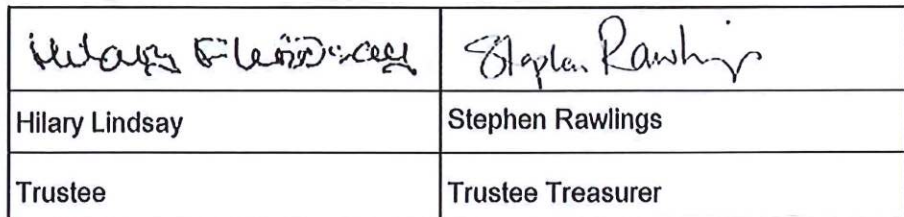 Hilary Stephen Rawlings
Hilary Lindsay Stephen Rawlings
Trustee Trustee Treasurer